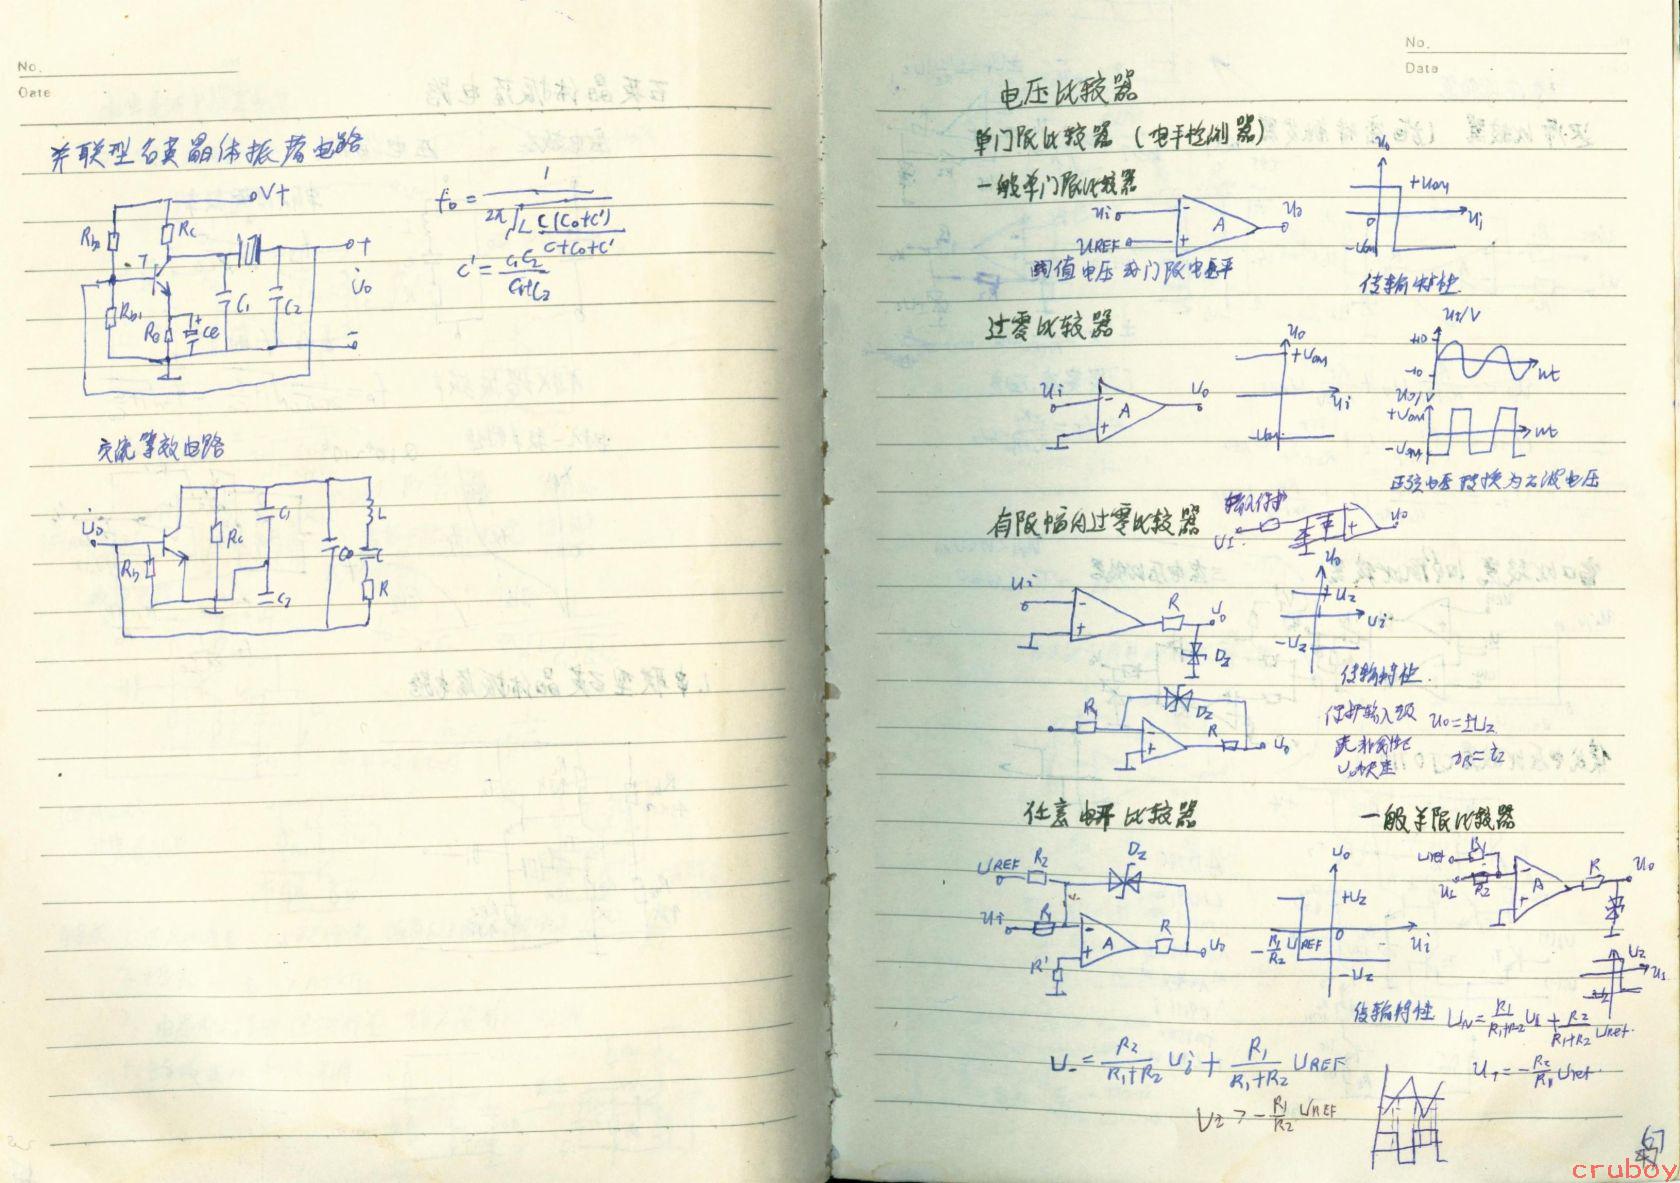 No.
Date
并联型石英晶体振荡电路
V+
Rb2
Rc
T
Rb1
Re
Ce
C1
C2
+
U̇o
-
f0 = 1 / 2π√(L C(C0+C') / C+C0+C')
C' = C1C2 / C1+C2
交流等效电路
U̇o
Rb
Rc
C1
C2
C0
L
C
R
No.
Date
电压比较器
单门限比较器 (电平检测器)
一般单门限比较器
Ui
UREF
A
Uo
阈值电压 为门限电平
Uo
+Uom
0
Ui
-Uom
传输特性
过零比较器
Ui
A
Uo
Uo
+Uom
Ui
-Uom
UI/V
+10
-10
wt
Uo/V
+Uom
-Uom
wt
正弦电压转换为方波电压
有限幅的过零比较器
输入保护
UI
Uo
Ui
R
Uo
Dz
Uo
+Uz
Ui
-Uz
传输特性
R1
Dz
R
Uo
保护输入级
Uo=±Uz
iR=iz
任意电平比较器
一般单限比较器
UREF
R2
Dz
Ui
R1
A
R
Uo
R'
Uo
+Uz
0
Ui
-R1/R2 UREF
-Uz
传输特性
Uref
R1
UI
R2
A
R
Uo
Uz
UI
-Uz
UN = R1/R1+R2 UI + R2/R1+R2 Uref
U- = R2/R1+R2 Ui + R1/R1+R2 UREF
UT = -R2/R1 Uref
Uz > -R1/R2 UREF
cruboy